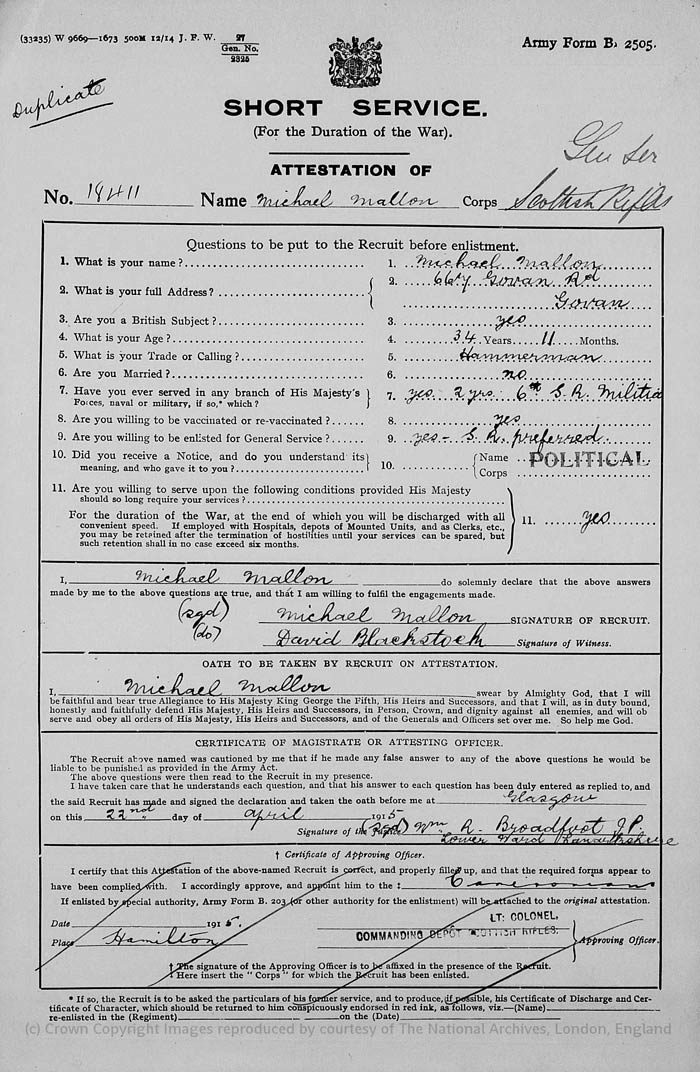 (33235) W 9669—1673 500M 12/14 J. F. W. 27
Gen. No.
2325
Army Form B. 2505.
Duplicate
SHORT SERVICE.
(For the Duration of the War).
Gen Ser
ATTESTATION OF
No. 18411 Name Michael Mallon Corps Scottish Rifles
Questions to be put to the Recruit before enlistment.
1. What is your name? 1. Michael Mallon
2. What is your full Address? 2. 667 Govan Rd
Govan
3. Are you a British Subject? 3. yes
4. What is your Age? 4. 34 Years 11 Months.
5. What is your Trade or Calling? 5. Hammerman
6. Are you Married? 6. no
7. Have you ever served in any branch of His Majesty's Forces, naval or military, if so,* which? 7. yes 2 yrs 6th S.R. Militia
8. Are you willing to be vaccinated or re-vaccinated? 8. yes
9. Are you willing to be enlisted for General Service? 9. yes - S.R. preferred
10. Did you receive a Notice, and do you understand its meaning, and who gave it to you? 10. Name POLITICAL
Corps
11. Are you willing to serve upon the following conditions provided His Majesty
should so long require your services?
For the duration of the War, at the end of which you will be discharged with all
convenient speed. If employed with Hospitals, depots of Mounted Units, and as Clerks, etc., 11. yes
you may be retained after the termination of hostilities until your services can be spared, but
such retention shall in no case exceed six months.
I, Michael Mallon do solemnly declare that the above answers
made by me to the above questions are true, and that I am willing to fulfil the engagements made.
(sgd) Michael Mallon SIGNATURE OF RECRUIT.
(do) David Blackstock Signature of Witness.
OATH TO BE TAKEN BY RECRUIT ON ATTESTATION.
I, Michael Mallon swear by Almighty God, that I will
be faithful and bear true Allegiance to His Majesty King George the Fifth, His Heirs and Successors, and that I will, as in duty bound,
honestly and faithfully defend His Majesty, His Heirs and Successors, in Person, Crown, and dignity against all enemies, and will ob
serve and obey all orders of His Majesty, His Heirs and Successors, and of the Generals and Officers set over me. So help me God.
CERTIFICATE OF MAGISTRATE OR ATTESTING OFFICER.
The Recruit above named was cautioned by me that if he made any false answer to any of the above questions he would be
liable to be punished as provided in the Army Act.
The above questions were then read to the Recruit in my presence.
I have taken care that he understands each question, and that his answer to each question has been duly entered as replied to, and
the said Recruit has made and signed the declaration and taken the oath before me at Glasgow
on this 22nd day of April 1915
Signature of the Justice (sgd) Wm R. Broadfoot J.P.
Lower Ward Lanarkshire
† Certificate of Approving Officer.
I certify that this Attestation of the above-named Recruit is correct, and properly filled up, and that the required forms appear to
have been complied with. I accordingly approve, and appoint him to the ‡ Cameronians
If enlisted by special authority, Army Form B. 203 (or other authority for the enlistment) will be attached to the original attestation.
Date 1915.
LT: COLONEL,
Place Hamilton COMMANDING DEPOT SCOTTISH RIFLES. Approving Officer.
† The signature of the Approving Officer is to be affixed in the presence of the Recruit.
‡ Here insert the "Corps" for which the Recruit has been enlisted.
* If so, the Recruit is to be asked the particulars of his former service, and to produce, if possible, his Certificate of Discharge and Cer-
tificate of Character, which should be returned to him conspicuously endorsed in red ink, as follows, viz.—(Name)
re-enlisted in the (Regiment) on the (Date)
(c) Crown Copyright Images reproduced by courtesy of The National Archives, London, England